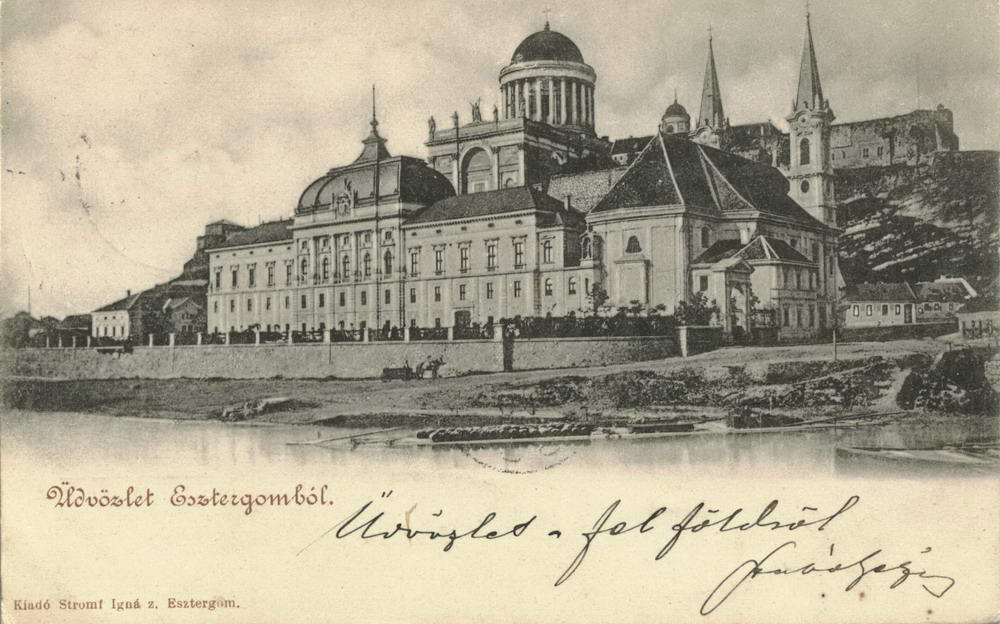 Üdvözlet Esztergomból.
Üdvözlet a fel földről
Kiadó Stromf Igná z. Esztergom.